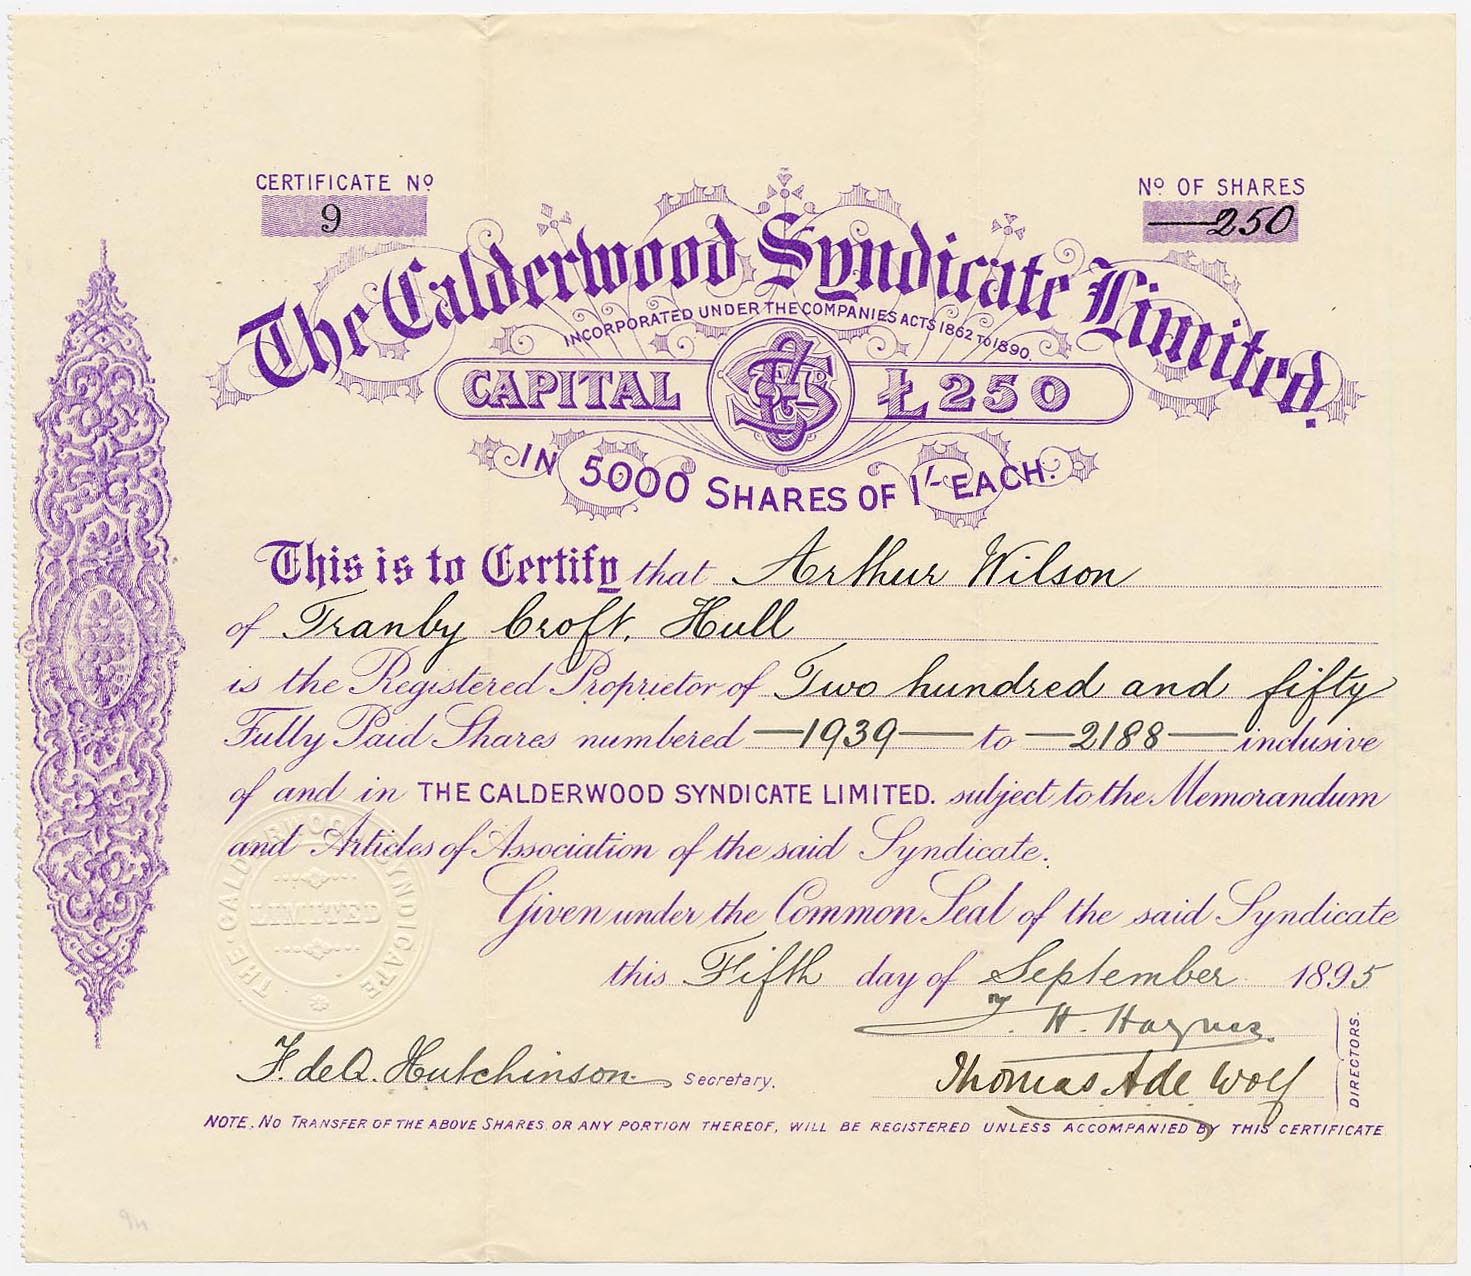 CERTIFICATE No
9
No OF SHARES
—250
The Calderwood Syndicate Limited.
INCORPORATED UNDER THE COMPANIES ACTS 1862 TO 1890.
CAPITAL £250
IN 5000 SHARES OF 1/- EACH.
This is to Certify that Arthur Wilson
of Tranby Croft, Hull
is the Registered Proprietor of Two hundred and fifty
Fully Paid Shares numbered —1939— to —2188— inclusive
of and in THE CALDERWOOD SYNDICATE LIMITED. subject to the Memorandum
and Articles of Association of the said Syndicate.
THE CALDERWOOD SYNDICATE
LIMITED
Given under the Common Seal of the said Syndicate
this Fifth day of September 1895
H. Haynes
F. de Q. Hutchinson Secretary.
Thomas A de Wolf
DIRECTORS.
NOTE. NO TRANSFER OF THE ABOVE SHARES OR ANY PORTION THEREOF, WILL BE REGISTERED UNLESS ACCOMPANIED BY THIS CERTIFICATE